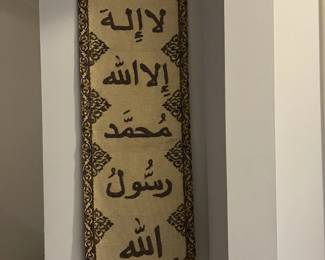 لا إِلهَ
إِلا الله
مُحمَّد
رسُولُ
الله